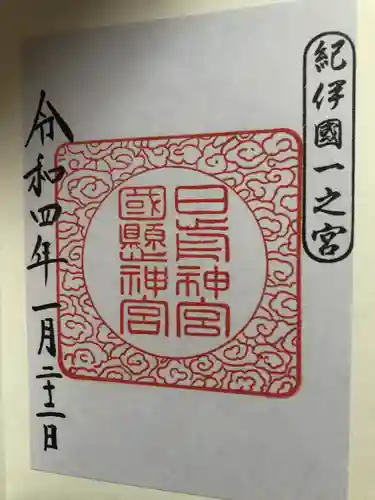 紀伊國一之宮
日前神宮
國懸神宮
令和四年一月二十二日